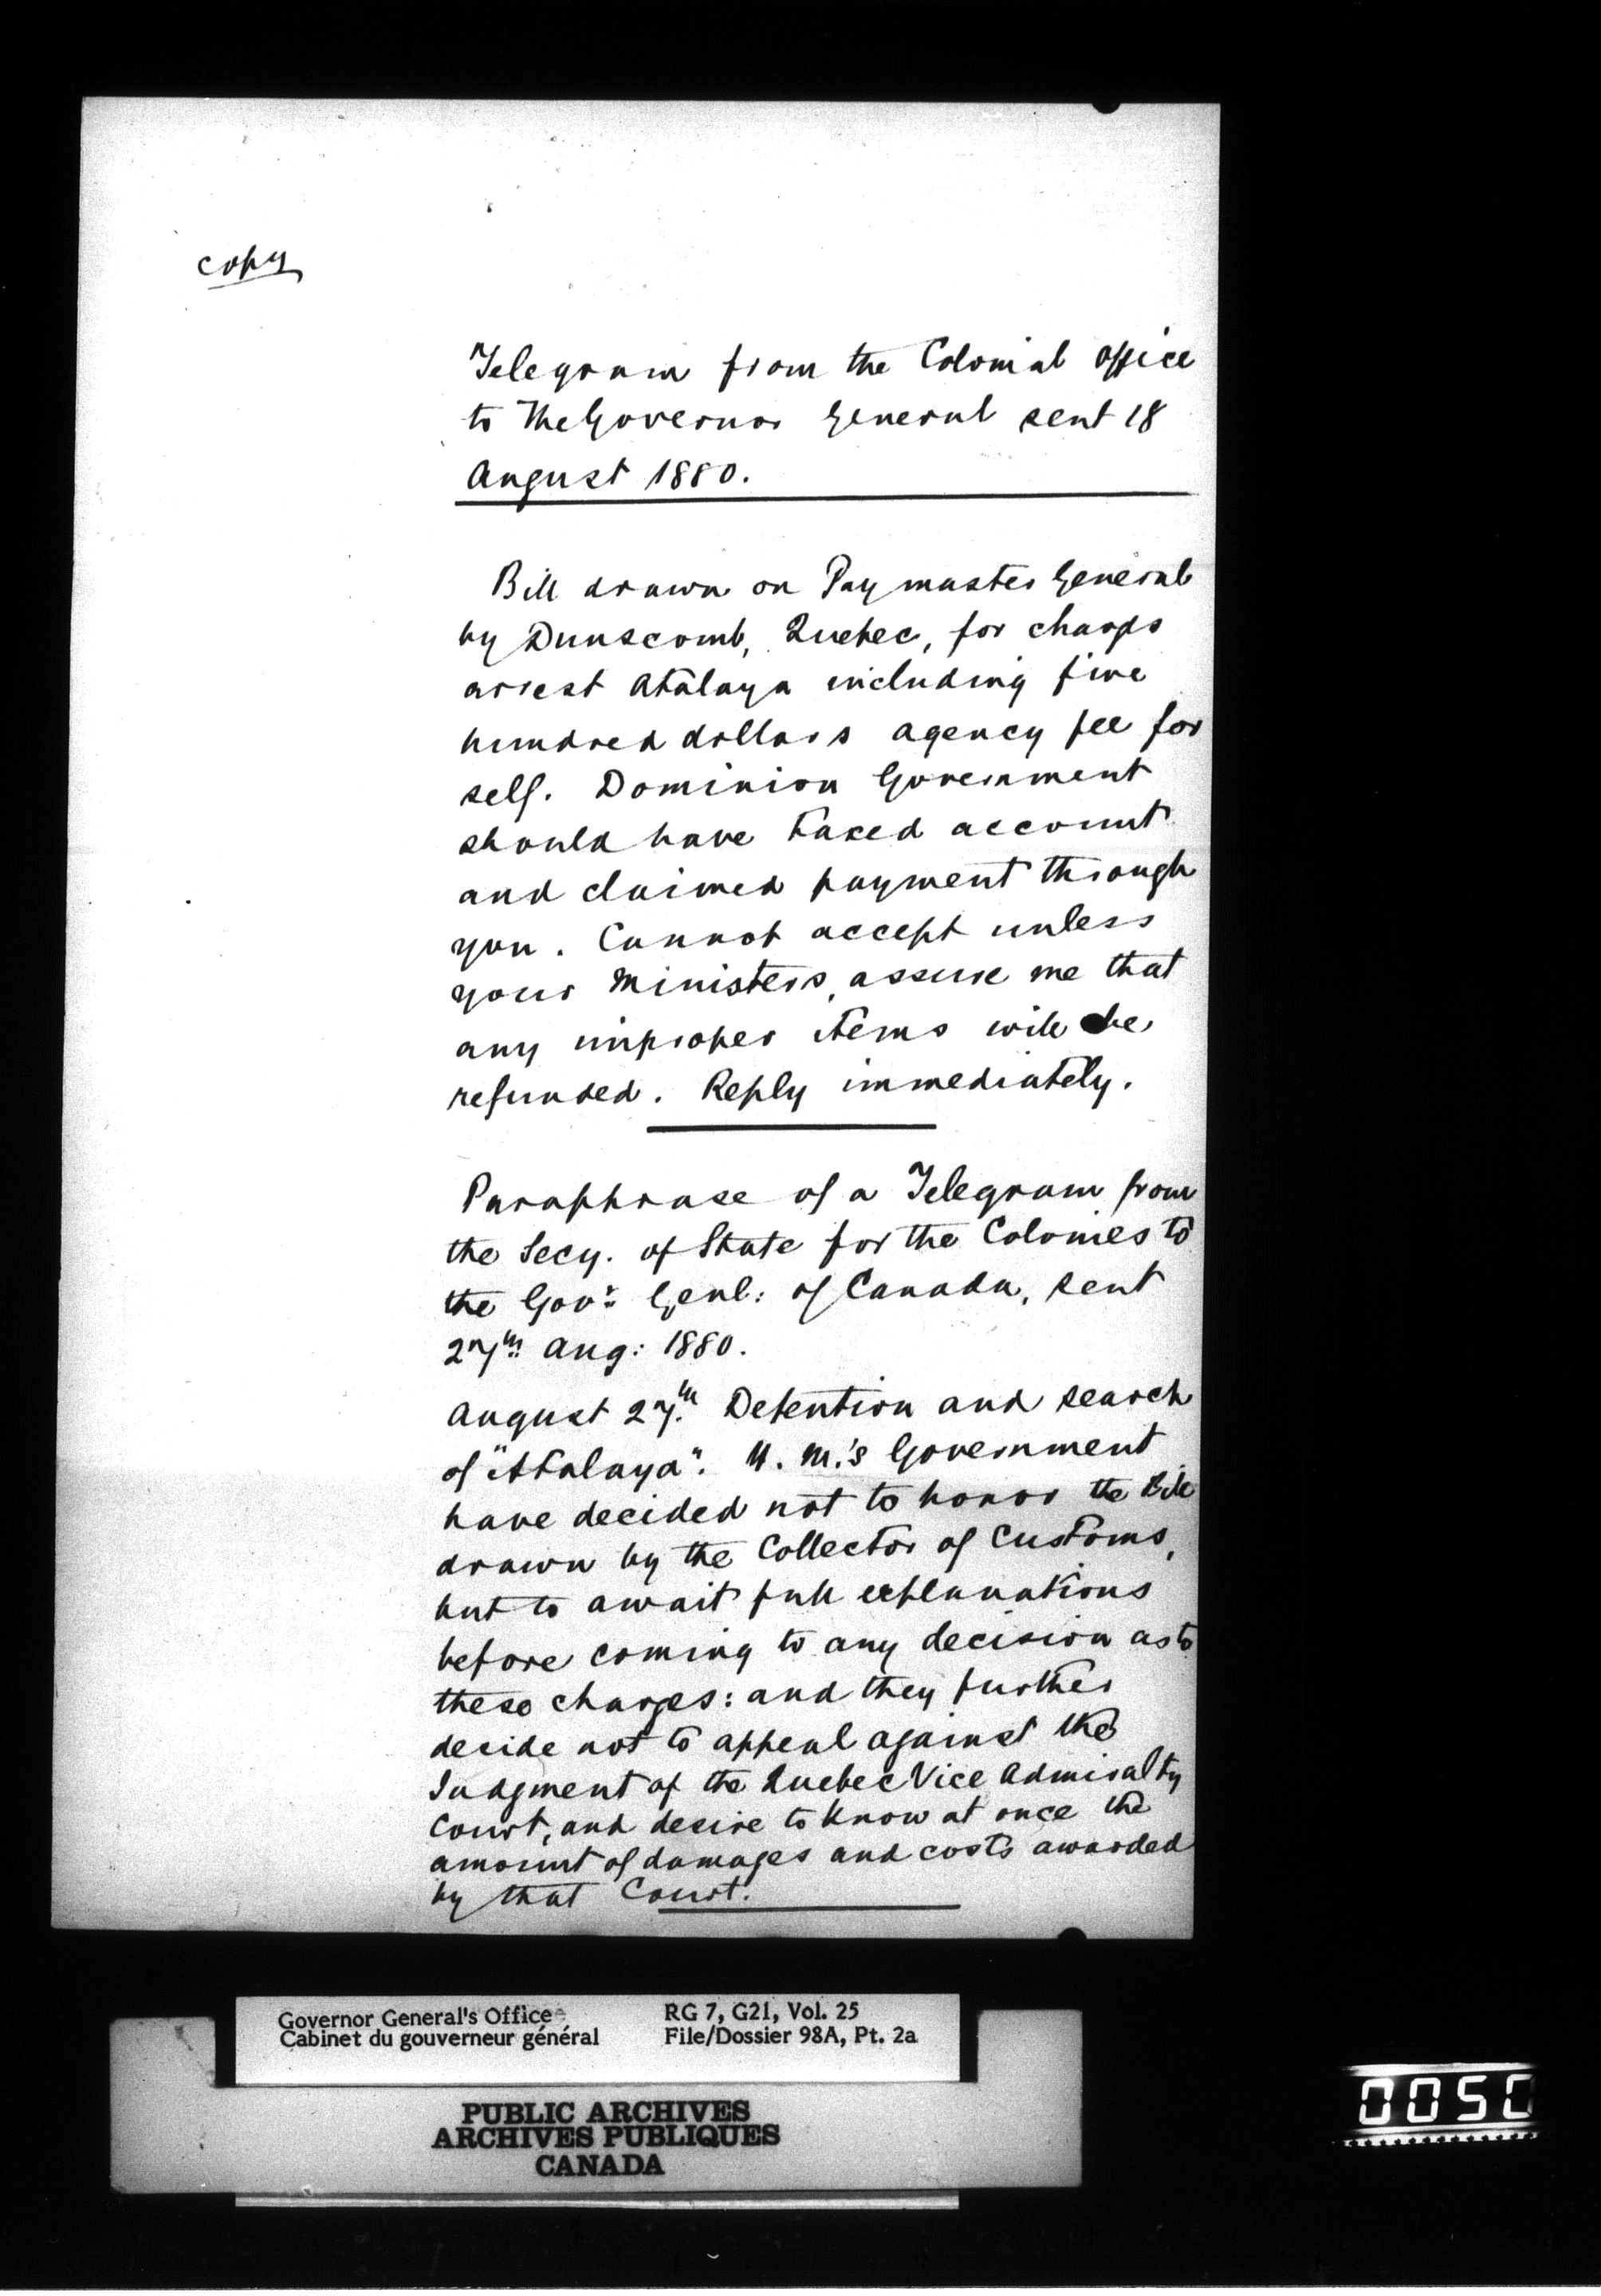 copy
Telegram from the Colonial Office
to The Governor General sent 18
August 1880.
Bill drawn on Paymaster General
by Dunscomb, Quebec, for charges
arrest Atalaya including five
hundred dollars agency fee for
self. Dominion Government
should have taxed account
and claimed payment through
you. Cannot accept unless
your Ministers, assure me that
any improper items will be
refunded. Reply immediately.
Paraphrase of a Telegram from
the Secy. of State for the Colonies to
the Govr: Genl: of Canada, sent
27th Aug: 1880.
August 27th. Detention and search
of "Atalaya". H. M.'s Government
have decided not to honor the Bill
drawn by the Collector of Customs,
but to await full explanations
before coming to any decision as to
these charges: and they further
decide not to appeal against the
Judgment of the Quebec Vice Admiralty
Court, and desire to know at once the
amount of damages and costs awarded
by that Court.
Governor General's Office
Cabinet du gouverneur général
RG 7, G21, Vol. 25
File/Dossier 98A, Pt. 2a
PUBLIC ARCHIVES
ARCHIVES PUBLIQUES
CANADA
0050